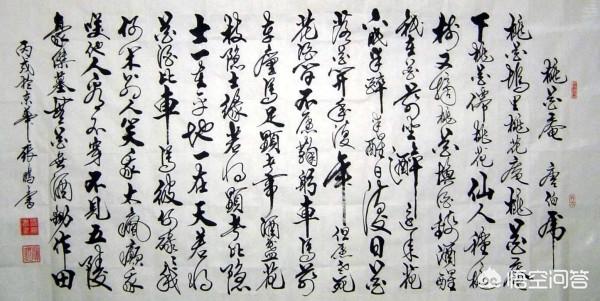 桃花庵 唐伯虎
桃花塢里桃花庵桃花庵
下桃花僊桃花仙人種桃
树又摘桃花换酒錢酒醒
只在花前坐酒醉还来花
下眠半醉半醒日復日花
落花開年復年但愿老死
花酒間不愿鞠躬車馬前
車塵馬足顯者事酒盞花
枝隱士缘若将顯者比隱
士一在平地一在天若将
花酒比車馬彼何碌碌我
何闲别人笑我太瘋癲我
笑他人看不穿不見五陵
豪傑墓無花無酒鋤作田
丙戌於京華張鵬書
悟空问答